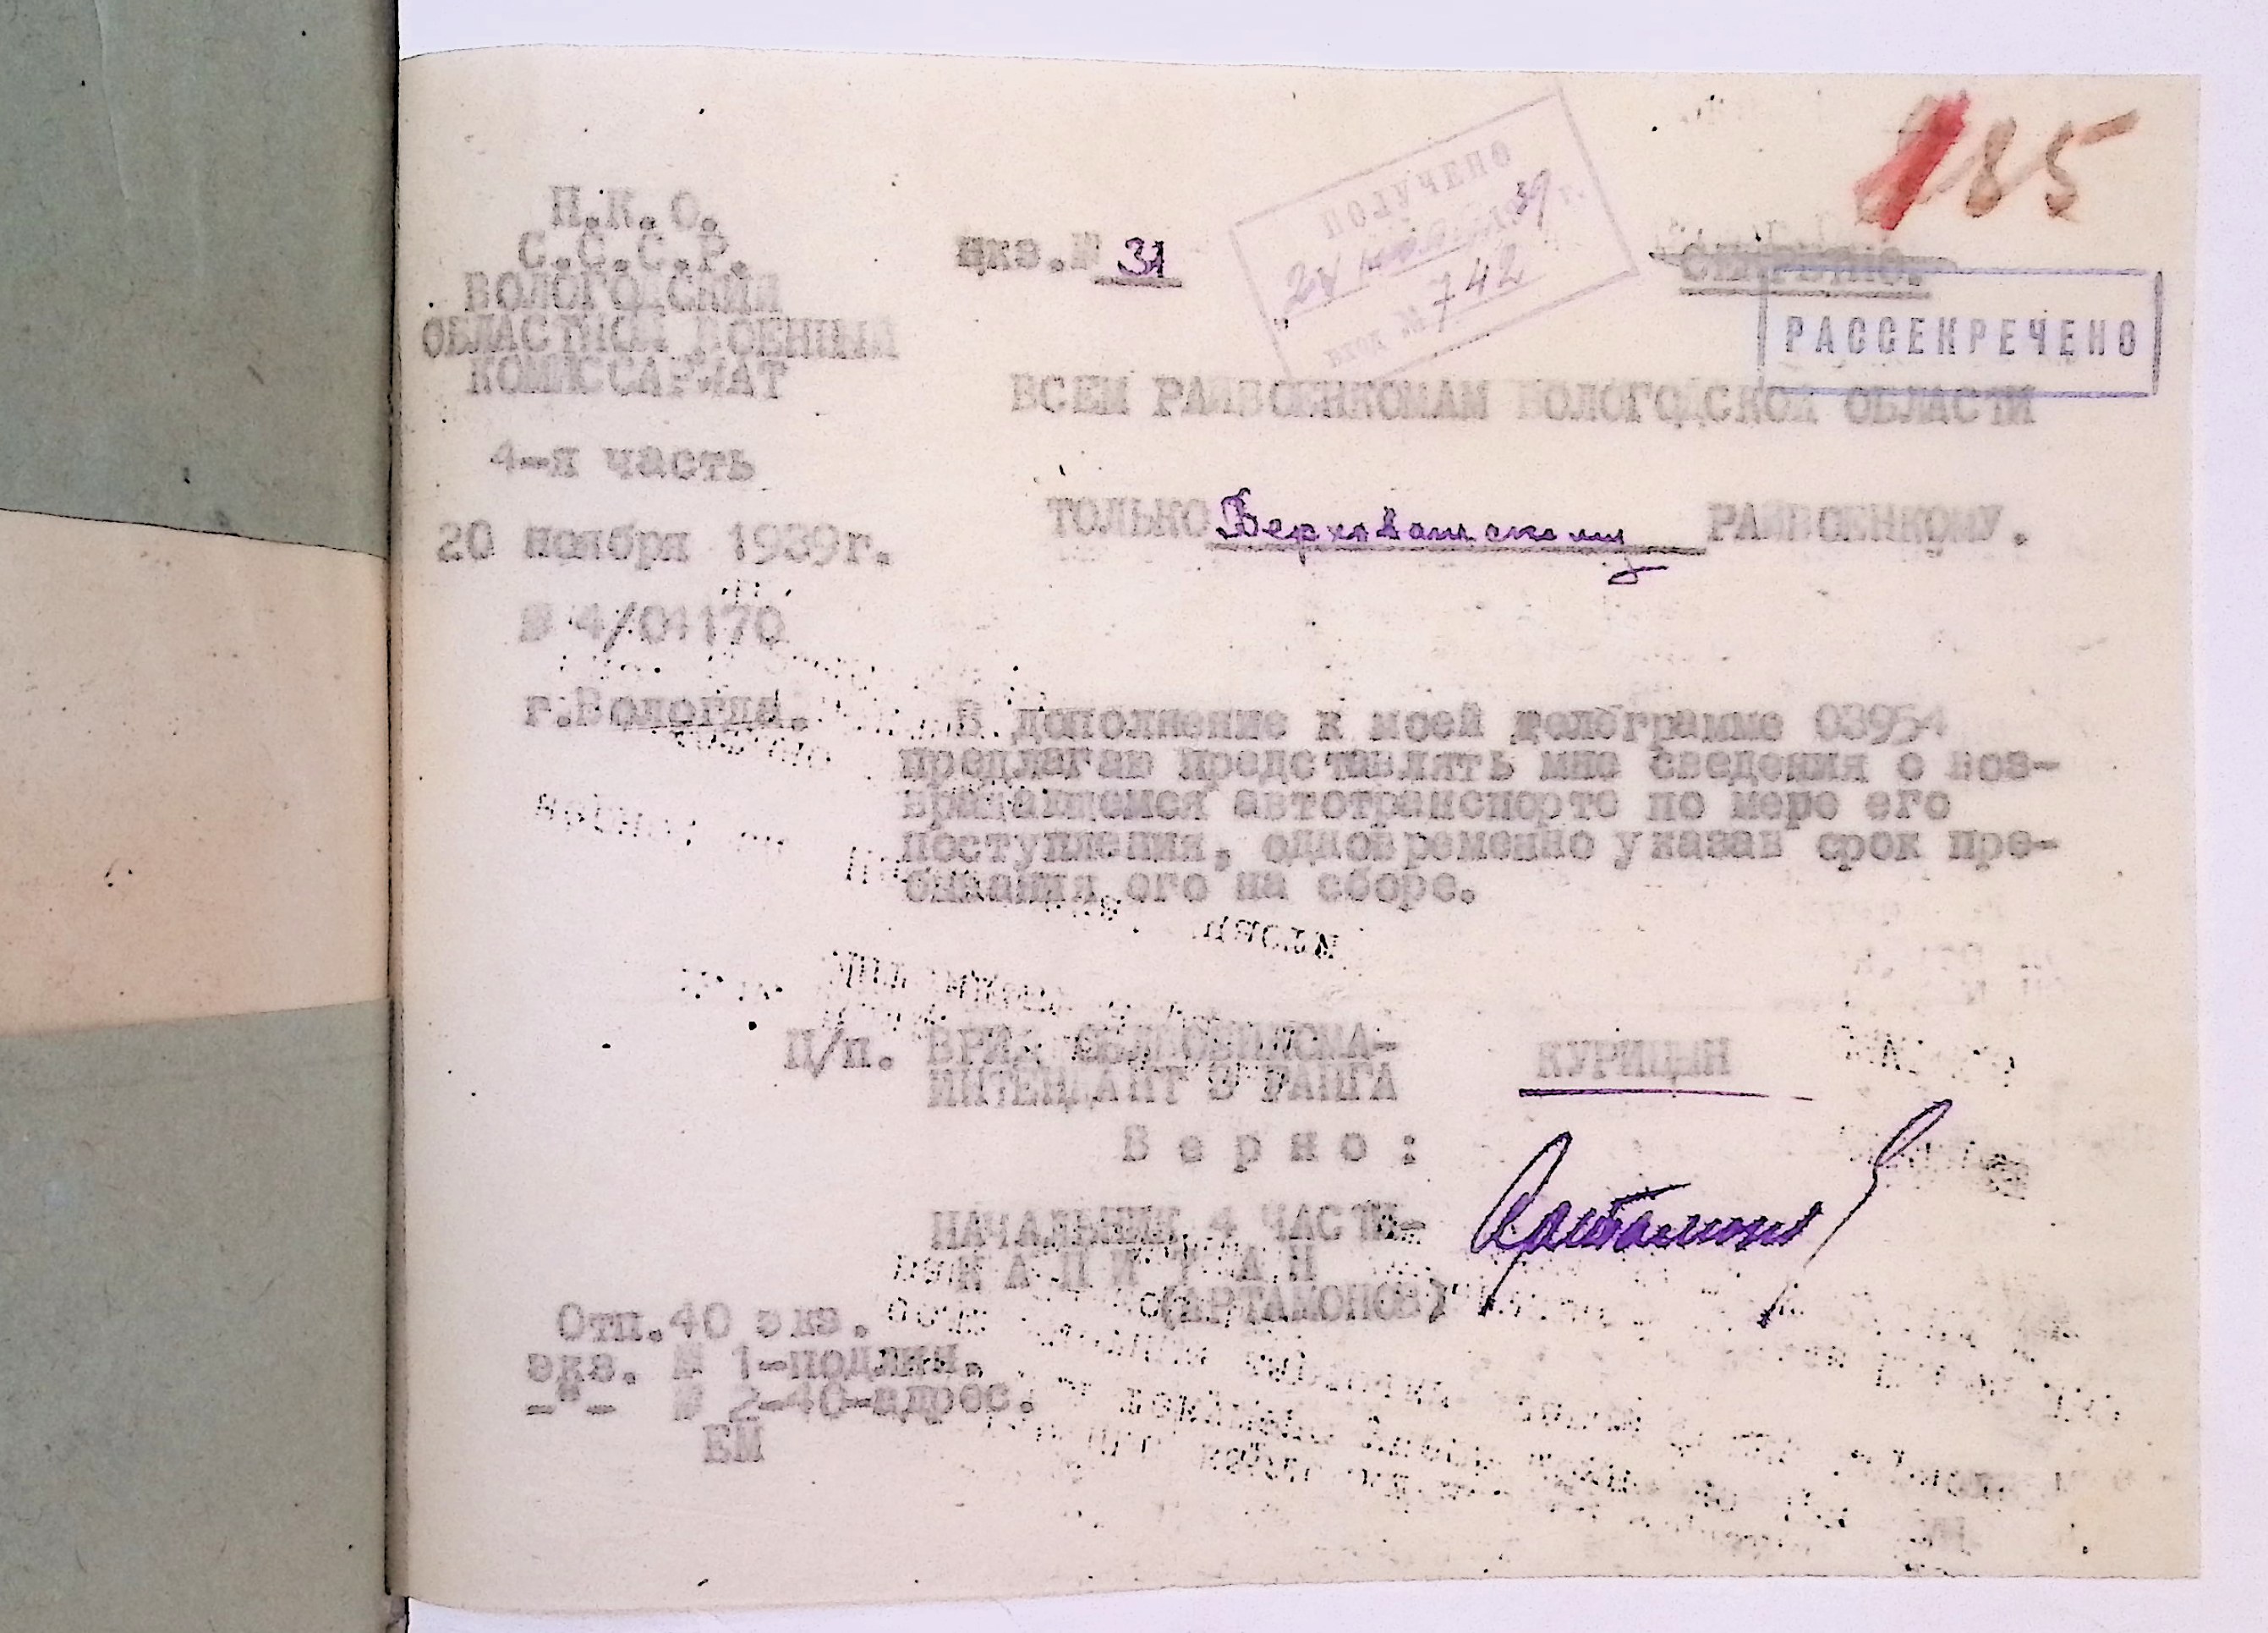 185
Н.К.О.
С.С.С.Р.
ВОЛОГОДСКИЙ
ОБЛАСТНОЙ ВОЕННЫЙ
КОМИССАРИАТ
4-я часть
20 ноября 1939г.
№ 4/01170
г.Вологда.
экз.№ 31
ПОЛУЧЕНО
24 39 г.
вход № 742
СЕКРЕТНО.
РАССЕКРЕЧЕНО
ВСЕМ РАЙВОЕНКОМАМ ВОЛОГОДСКОЙ ОБЛАСТИ
ТОЛЬКО Верховажскому РАЙВОЕНКОМУ.
В дополнение к моей телеграмме 03954
предлагаю представлять мне сведения о воз-
вращающемся автотранспорте по мере его
поступления, одновременно указав срок пре-
бывания его на сборе.
П/п. ВРИД ОБЛВОЕНКОМА-
ИНТЕНДАНТ 3 РАНГА
КУРИЦЫН
Верно:
НАЧАЛЬНИК 4 ЧАСТИ-
КАПИТАН
(АРТАМОНОВ)
Отп.40 экз.
экз. № 1-подлин.
-"- № 2-40-адрес.
ЕМ